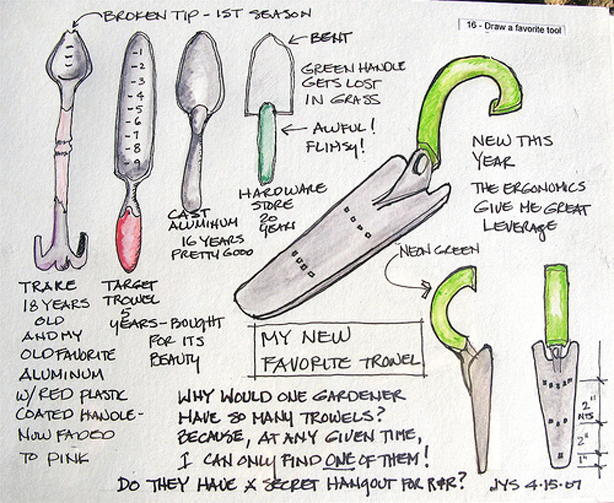 BROKEN TIP - 1ST SEASON
16 - Draw a favorite tool
-1
-2
-3
-4
-5
-6
-7
-8
-9
BENT
GREEN HANDLE
GETS LOST
IN GRASS
AWFUL!
FLIMSY!
HARDWARE
STORE
20
YEARS
CAST
ALUMINUM
16 YEARS
PRETTY GOOD
NEW THIS
YEAR
THE ERGONOMICS
GIVE ME GREAT
LEVERAGE
NEON GREEN
TRAKE
18 YEARS
OLD
AND MY
OLD FAVORITE
ALUMINUM
W/RED PLASTIC
COATED HANDLE-
NOW FADED
TO PINK
TARGET
TROWEL
5
YEARS - BOUGHT
FOR ITS
BEAUTY
MY NEW
FAVORITE TROWEL
2"
NTS
2"
1"
WHY WOULD ONE GARDENER
HAVE SO MANY TROWELS?
BECAUSE, AT ANY GIVEN TIME,
I CAN ONLY FIND ONE OF THEM!
DO THEY HAVE A SECRET HANGOUT FOR R&R?
JYS 4-15-07